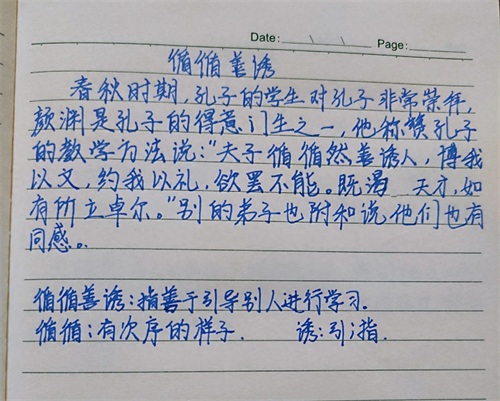 Date: \ \ Page:
循循善诱
春秋时期,孔子的学生对孔子非常崇拜,
颜渊是孔子的得意门生之一,他称赞孔子
的教学方法说:“夫子循循然善诱人,博我
以文,约我以礼,欲罢不能。既渴 天才,如
有所立卓尔。”别的弟子也附和说他们也有
同感。
循循善诱:指善于引导别人进行学习.
循循:有次序的样子. 诱:引;指.